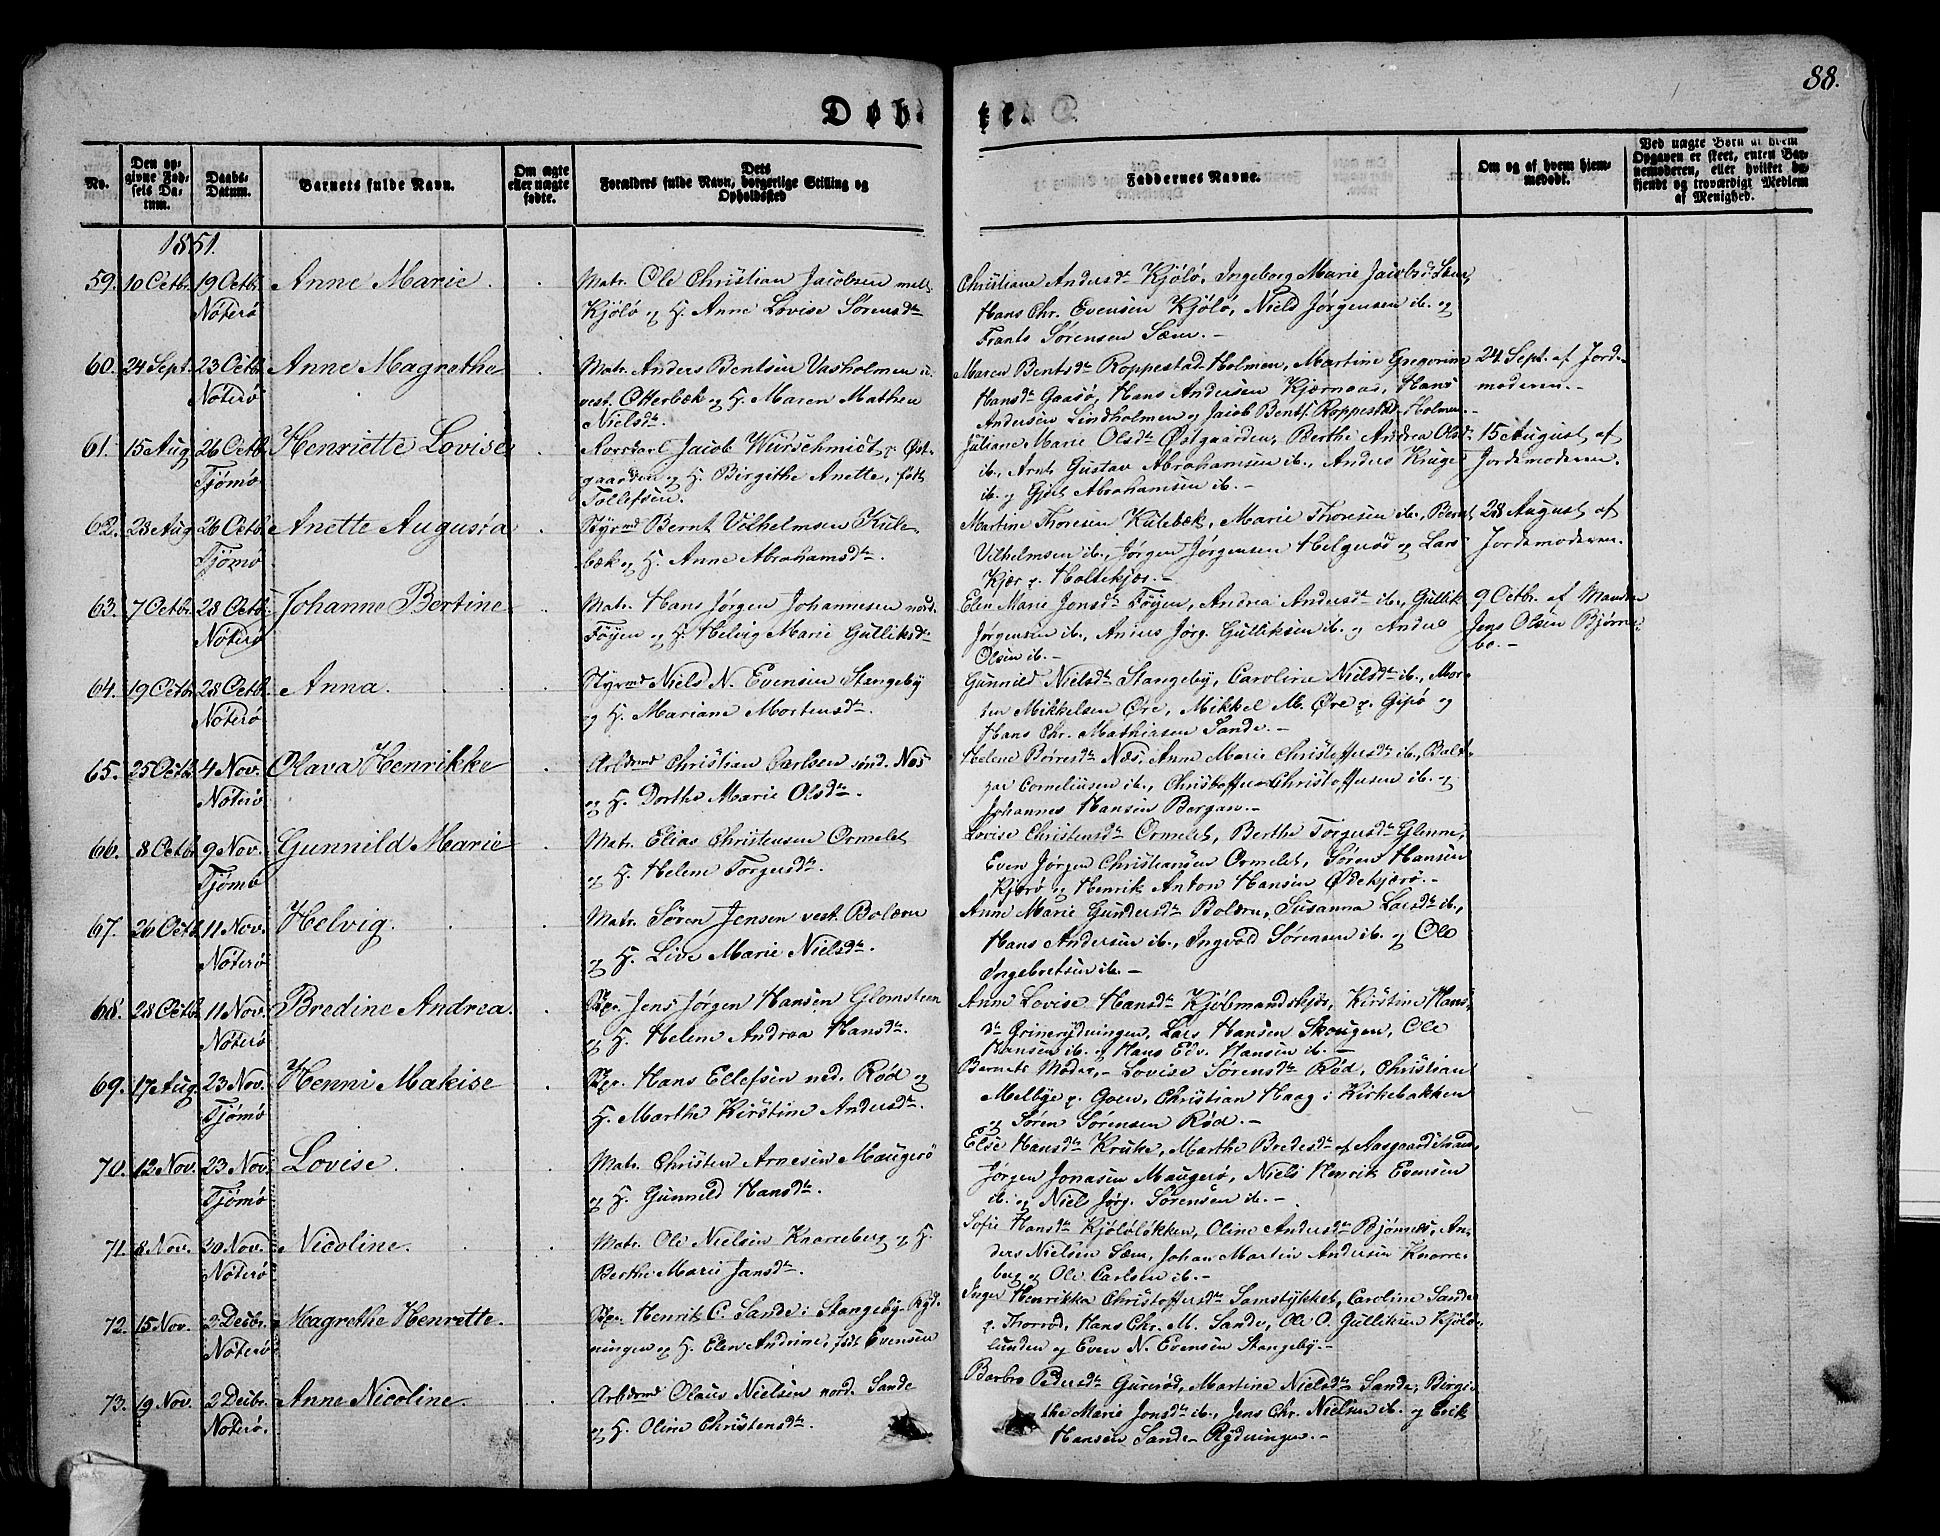 88.
Døbte
No.
Den opgivne Fødsels Datum.
Daabs-Datum.
Barnets fulde Navn.
Om ægte eller uægte fødte.
Dets Forældres fulde Navn, borgerlige Stilling og Opholdssted
Faddernes Navne.
Om og af hvem hjemmedøbt.
Ved uægte Børn af hvem Opgaven er skeet, enten Barnemoderen, eller hvilket bekjendt og troværdigt Medlem af Menighed.
1851.
59. 10 Octbr. 19 Octbr. Nøterø Anne Marie.
Matr. Ole Christian Jacobsen mell.
Kjølø og H. Anne Lovise Sørensdtr
Christiane Andersdtr Kjølø, Ingeborg Marie Jacobsd. Sæm,
Hans Chr. Evensen Kjølø, Niels Jørgensen ib. og
Frants Sørensen Sæm.-
60. 24 Sept. 23 Octbr Nøterø Anne Magrethe
Matr. Anders Bentsen Vasholmen u.
vest. Otterbæk og H. Maren Mathea
Nielsdtr.
Maren Bentsdtr Roppestad-Holmen, Martine Gregorine
Hansdtr Gaasø, Hans Andersen Kjærnaas, Hans
Andersen Lindholmen og Jacob Bents. Roppestad-Holmen.-
24 Sept. af Jorde-
moderen.-
61. 15 Aug 26 Octb. Tjømø Henriette Lovise
Jacob Würschmidt p. Øst-
gaarden og H. Birgithe Anette, født
Tollefsen.
Juliane Marie Olsdtr Østgaarden, Berthe Andrea Olsdtr
ib., Arnt Gustav Abrahamsen ib., Anders Kruge
ib. og Gjert Abrahamsen ib.-
15 August af
Jordemoderen.
62. 28 Aug. 26 Octb. Tjømø Anette Augusta
Styrmd Bernt Vilhelmsen Kule-
bæk og H. Anne Abrahamsdtr.
Martine Thoresen Kulebæk, Marie Thoresen ib., Bernt
Vilhelmsen ib., Jørgen Jørgensen Helgerød og Lars
Kjær p. Holtekjær.-
28 August af
Jordemoderen.
63. 7 Octbr. 28 Octb. Nøterø Johanne Bertine
Matr. Hans Jørgen Johannesen nord.
Føyen og H. Helvig Marie Gulliksdtr
Elen Marie Jonsdtr Føyen, Andrea Andersdtr ib., Gullik
Jørgensen ib., Anders Jørg. Gulliksen ib. og Anders
Olsen ib.-
9 Octbr. af Manden
Jens Olsen Bjørne-
bo.-
64. 19 Octbr 28 Octb. Nøterø Anna.
Styrmd Niels N. Evensen Stangeby
og H. Mariane Mortensdtr.
Gunnild Nielsdtr Stangeby, Caroline Nielsdtr ib., Mor-
ten Mikkelsen Øre, Mikkel M. Øre p. Gipø og
Hans Chr. Mathiasen Sande.-
65. 25 Octb. 4 Nov. Nøterø Olava Henrikke
Arbdmd Christian Carlsen sønd. Næs
og H. Dorthe Marie Olsdtr.
Helene Børresdtr Næs, Anne Marie Christoffersdtr ib., Balt-
zar Corneliusen ib., Christoffer Christoffersen ib. og
Johannes Hansen Bergan.-
66. 8 Octbr 9 Nov. Tjømø Gunnild Marie
Matr. Elias Christensen Ormelet
og H. Helene Torgersdtr.
Lovise Christensdtr Ormelet, Berthe Torgersdtr Glenne,
Even Jørgen Christiansen Ormelet, Søren Hansen
Kjærø og Henrik Anton Hansen Ødekjærø.-
67. 26 Octb. 11 Nov. Nøterø Helvig.
Matr. Søren Jensen vest. Bolærn
og H. Live Marie Nielsdtr.
Anne Marie Gundersdtr Bolærn, Susanna Larsdtr ib.,
Hans Andersen ib., Ingvald Sørensen ib. og Ole
Ingebretsen ib.-
68. 28 Octb. 11 Nov. Nøterø Bredine Andrea.
Skpr. Jens Jørgen Hansen Glomsteen
og H. Helene Andrea Hansdtr.
Anne Lovise Hansdtr Kjøbmandskjær, Kirstine Hans-
dtr Grinerydningen, Lars Hansen Skougen, Ole
Hansen ib. og Hans Edv. Hansen ib.-
69. 17 Aug. 23 Nov. Tjømø Henni Makise
Skpr. Hans Ellefsen ned. Rød og
H. Marthe Kirstine Andersdtr.
Barnets Moder,- Lovise Sørensdtr Rød, Christian
Melbye p. Goen, Christian Haag i Kirkebakken
og Søren Sørensen Rød.-
70. 12 Nov. 23 Nov. Tjømø Lovise.
Matr. Christen Arnesen Maugerø
og H. Gunnild Hansdtr.
Else Hansdtr Kruke, Marthe Bredesdtr af Aasgaardstrand,
Jørgen Jonasen Maugerø, Niels Henrik Evensen
ib. og Niels Jørg. Sørensen ib.-
71. 8 Nov. 20 Nov. Nøterø Nicoline.
Matr. Ole Nielsen Knarreberg og H.
Berthe Marie Jansdtr.
Sofie Hansdtr Kjøløløkken, Oline Andersdtr Bjønnes, An-
ders Nielsen Sæm, Johan Martin Andersen Knarre-
berg og Ole Carlsen ib.-
72. 15 Nov. 2 Decbr. Nøterø Magrethe Henrette.
Skpr. Henrik C. Sande i Stangeby-Ryd-
ningen og H. Elen Andrine, født Evensen
Inger Henrikka Christoffersdtr Samstykket, Caroline Sande
p. Thorrød, Hans Chr. M. Sande, Ole O. Gulliksen Kjølø-
lunden og Even N. Evensen Stangeby.-
73. 19 Nov. 2 Decbr. Nøterø. Anne Nicoline.
Arbdmd Olaus Nielsen nord. Sande
og H. Oline Christensdtr.
Barbro Pedersdtr Gurerød, Martine Nielsdtr Sande, Birgi-
the Marie Jonsdtr ib., Jens Chr. Nielsen ib. og Erik
Hansen Sande-Rydningen.-